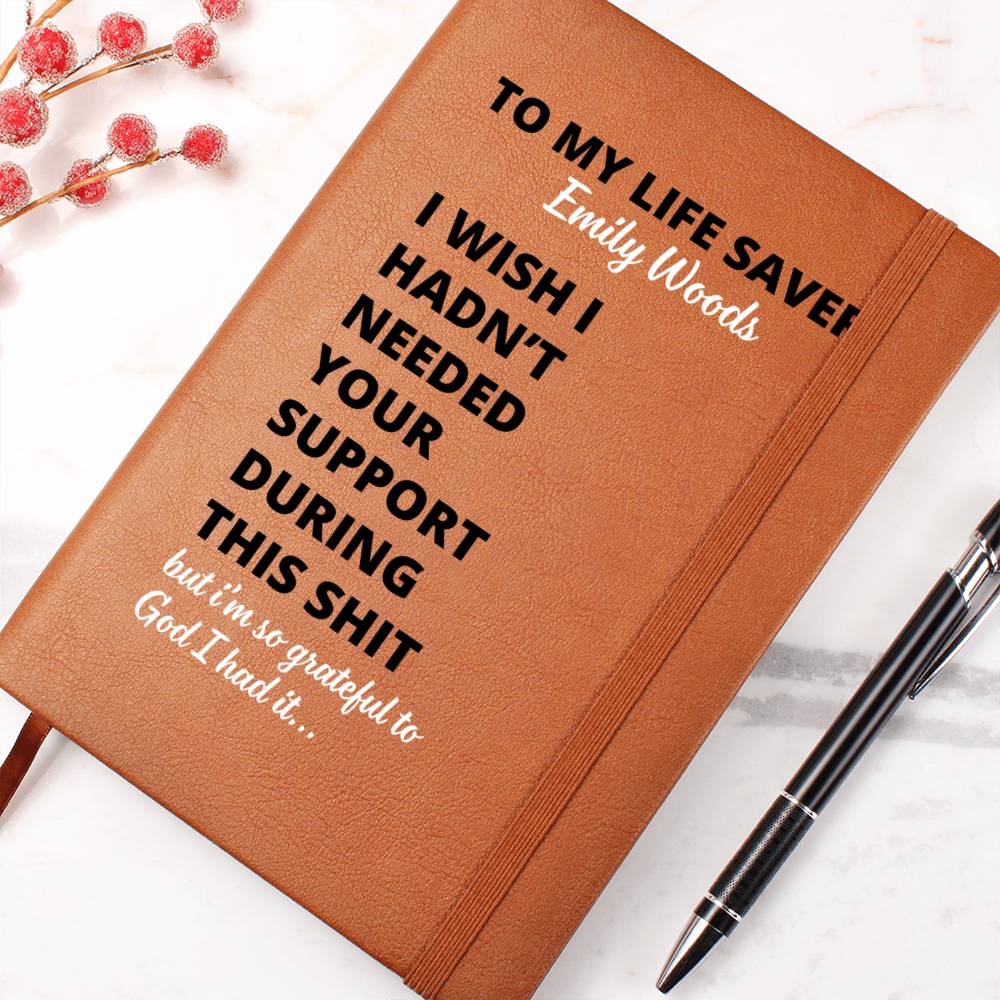 TO MY LIFE SAVER
Emily Woods
I WISH I
HADN'T
NEEDED
YOUR
SUPPORT
DURING
THIS SHIT
but i'm so grateful to
God I had it...